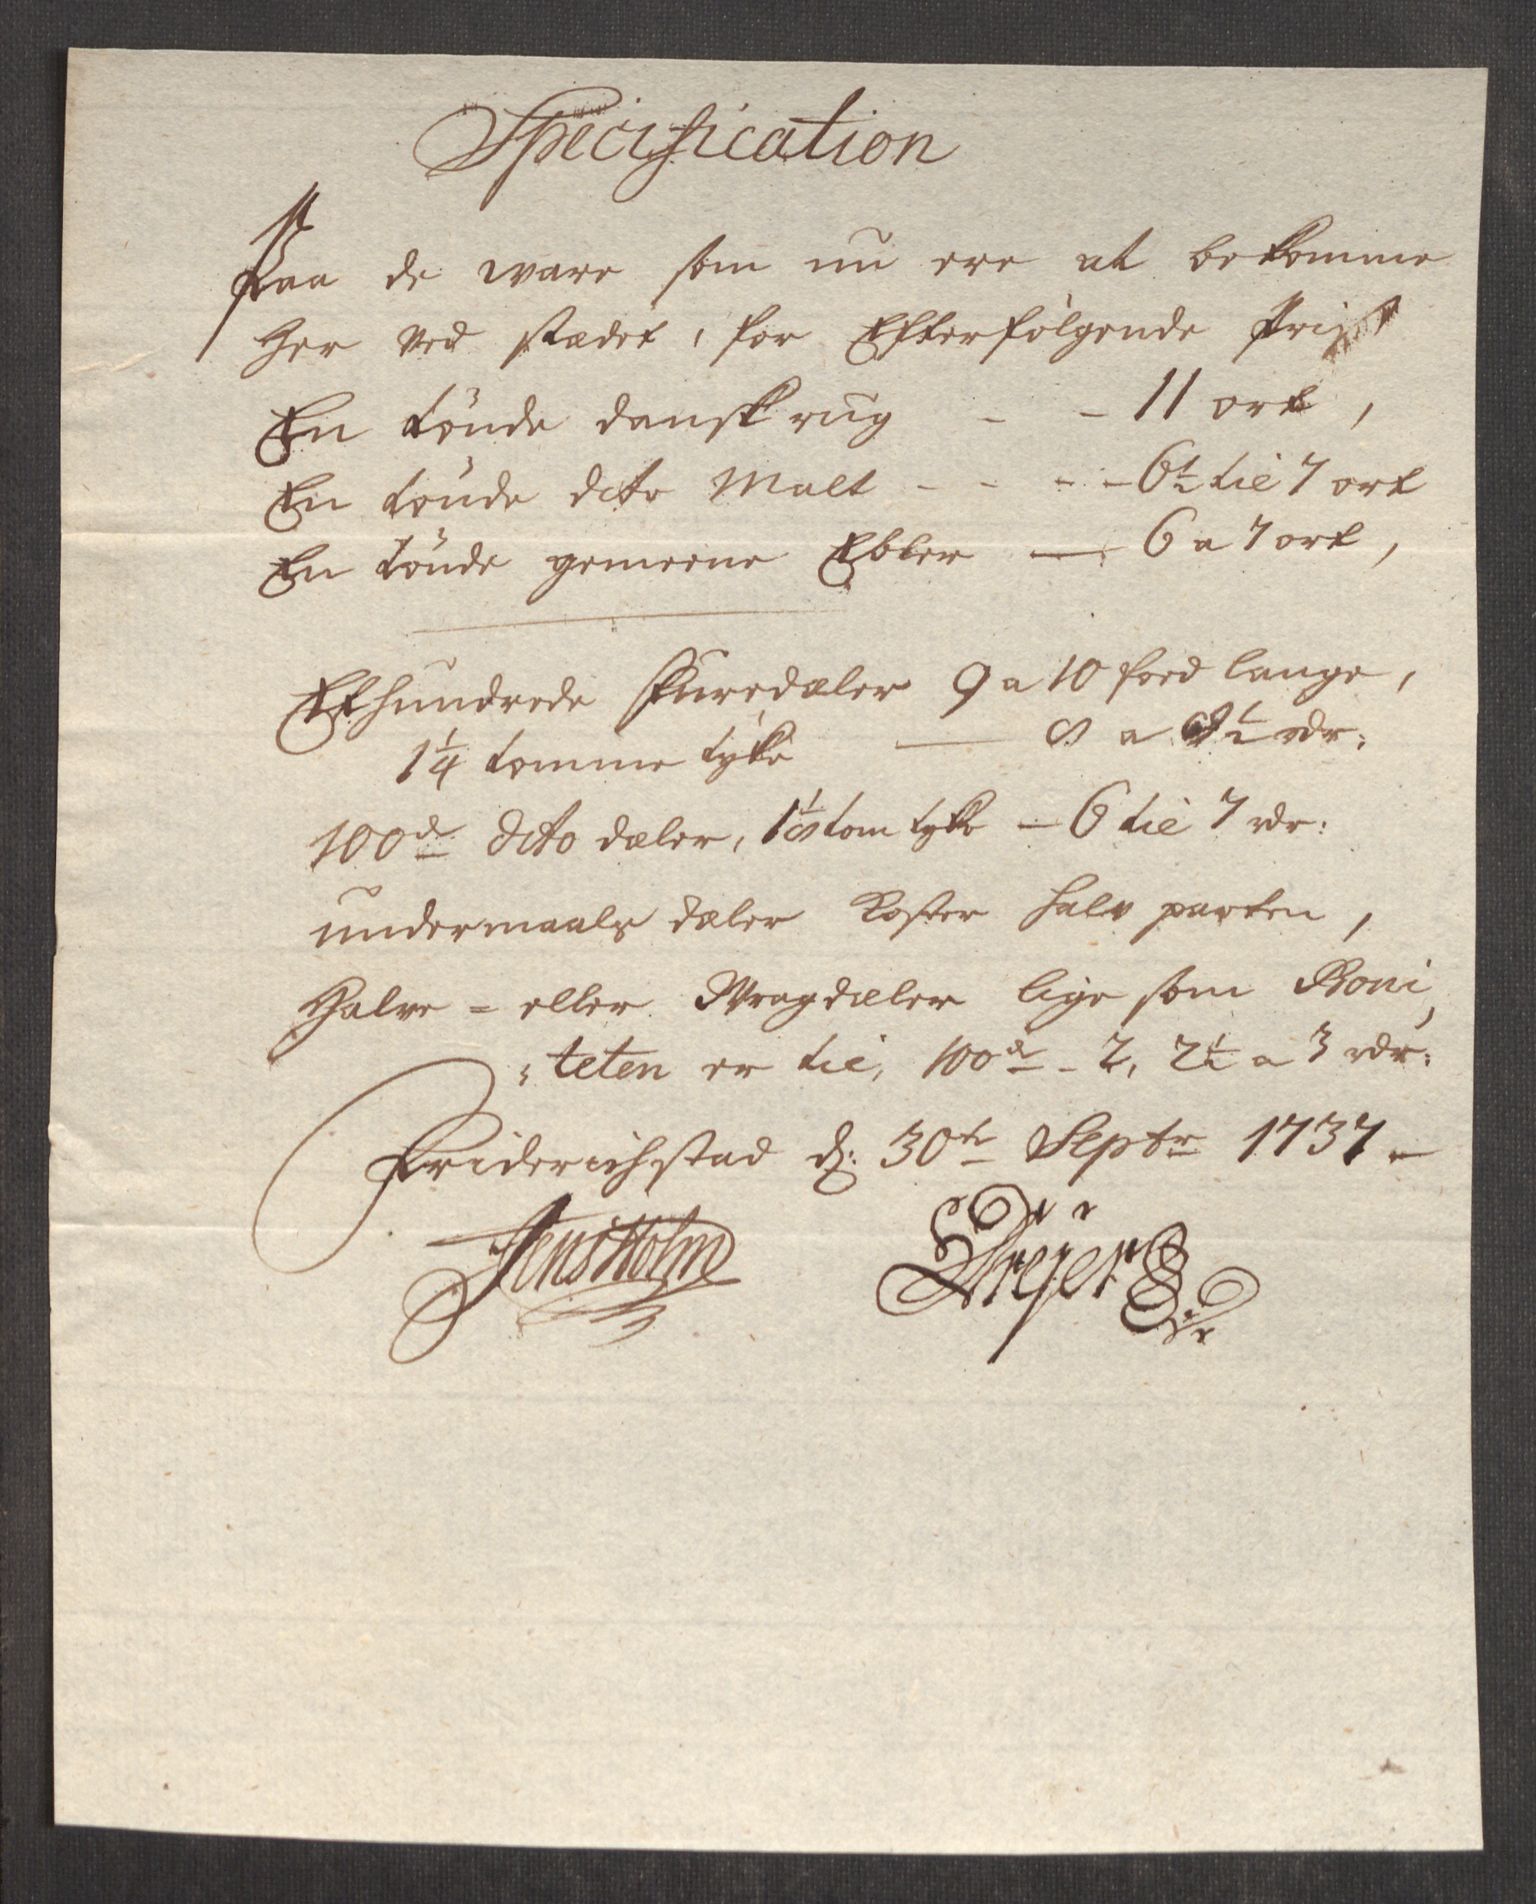 Specification
Paa de ware som nu ere at bekomme
Her ved stædet, for Efterfølgende Priss
En tönde dansk rug - - 11 ort,
En tönde dito Malt - - - - 6½ tie 7 ort
En tönde gemeene Ebler — 6 a 7 ort,
Et hundrede furredæler 9 a 10 foed lange,
1¼ tomme tyke — 8 a 8½ rdr:
100de dito dæler, 1⅛ tom tyke — 6 tie 7 rdr:
undermaals dæler koster halv parten,
Halve = eller Wragdæler lige som Boni
teten er tie, 100de - 2, 2½ a 3 rdr:
Friderichstad d: 30te Septr 1737 —
Jens Holm Dreyer